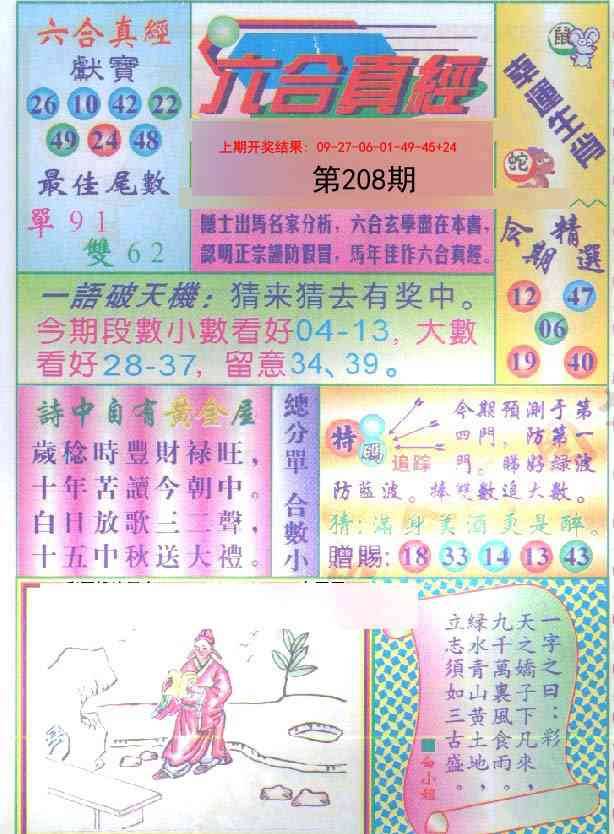 六合真經
獻寶
26 10 42 22
49 24 48
最佳尾數
單 9 1
雙 6 2
六合真經
上期开奖结果：09-27-06-01-49-45+24
第208期
隱士出馬名家分析，六合玄學盡在本書，
認明正宗謹防假冒，馬年佳作六合真經。
鼠
幸運生肖
蛇
今期精選
12 47
06
19 40
一語破天機：猜来猜去有奖中。
今期段數小數看好04-13，大數
看好28-37，留意34、39。
詩中自有黃金屋
歲稔時豐財禄旺，
十年苦讀今朝中。
白日放歌三二聲，
十五中秋送大禮。
總分單 合數小
特碼
追踪
今期預測于第
四門，防第一
門。睇好緑波
防藍波。捧雙數追大數。
猜：滿身美酒更是醉。
贈賜：18 33 14 13 43
一字之曰：彩
天之嬌子下凡來，
九千萬裏風食雨，
緑水青山黄土地，
立志須如三古盛。
白小姐